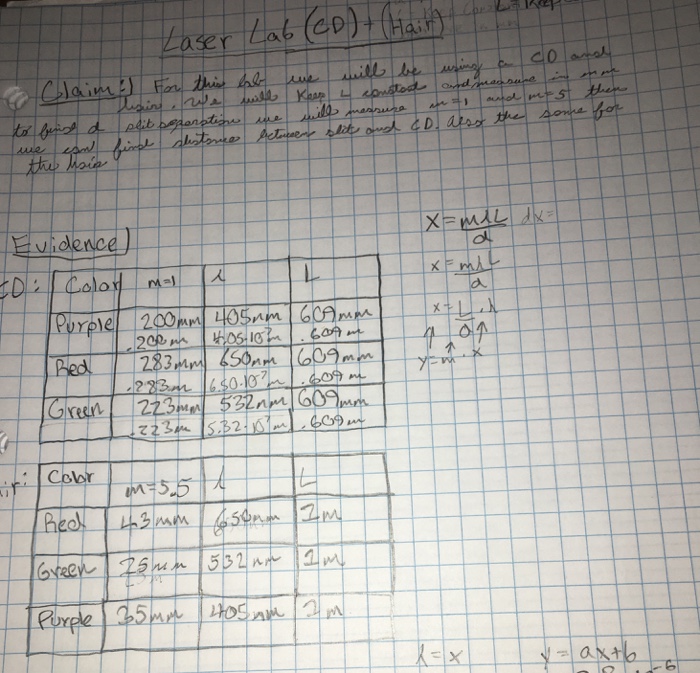 Laser Lab (CD) + (Hair)
L = Keep
Claim:) For this lab we will be using a CD and
hair. We will Keep L constant and measure in mm
to find d slit separation we will measure m=1 and m=5 then
we can find distance between slit and CD. Also the same for
the hair
X = mλL / d dx=
x = mλL / d
x = L/d · λ
y = m · x
Evidence)
CD:
Color m=1 λ L
Purple 200mm 405nm 609mm
.200m 4.05·10⁻⁷m .609m
Red 283mm 650nm 609mm
.283m 6.50·10⁻⁷m .609m
Green 223mm 532nm 609mm
.223m 5.32·10⁻⁷m .609m
Color m=5.5 λ L
Red 43mm 650nm 1m
Green 532nm 1m
Purple 35mm 405nm 1m
λ = x y = ax+b